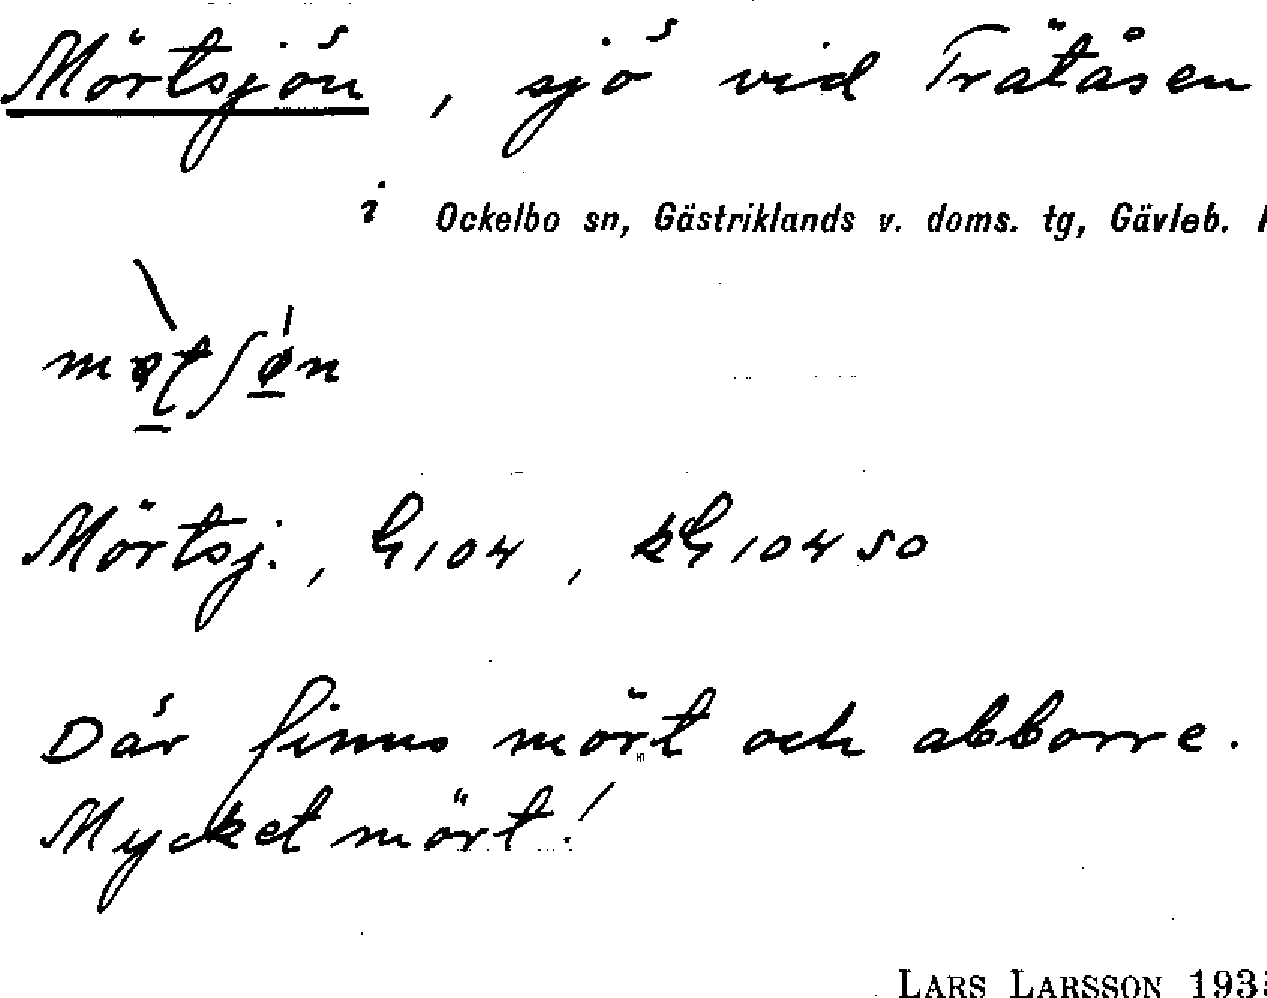 Mörtsjön, sjö vid Trätåsen
i Ockelbo sn, Gästriklands v. doms. tg, Gävleb.
Mörtsj., G104, kG10450
Där finns mört och abborre.
Mycket mört!
LARS LARSSON